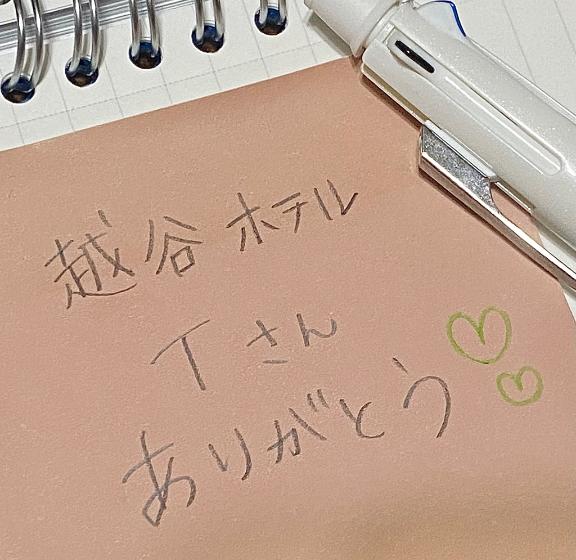 越谷ホテル
Tさん
ありがとう